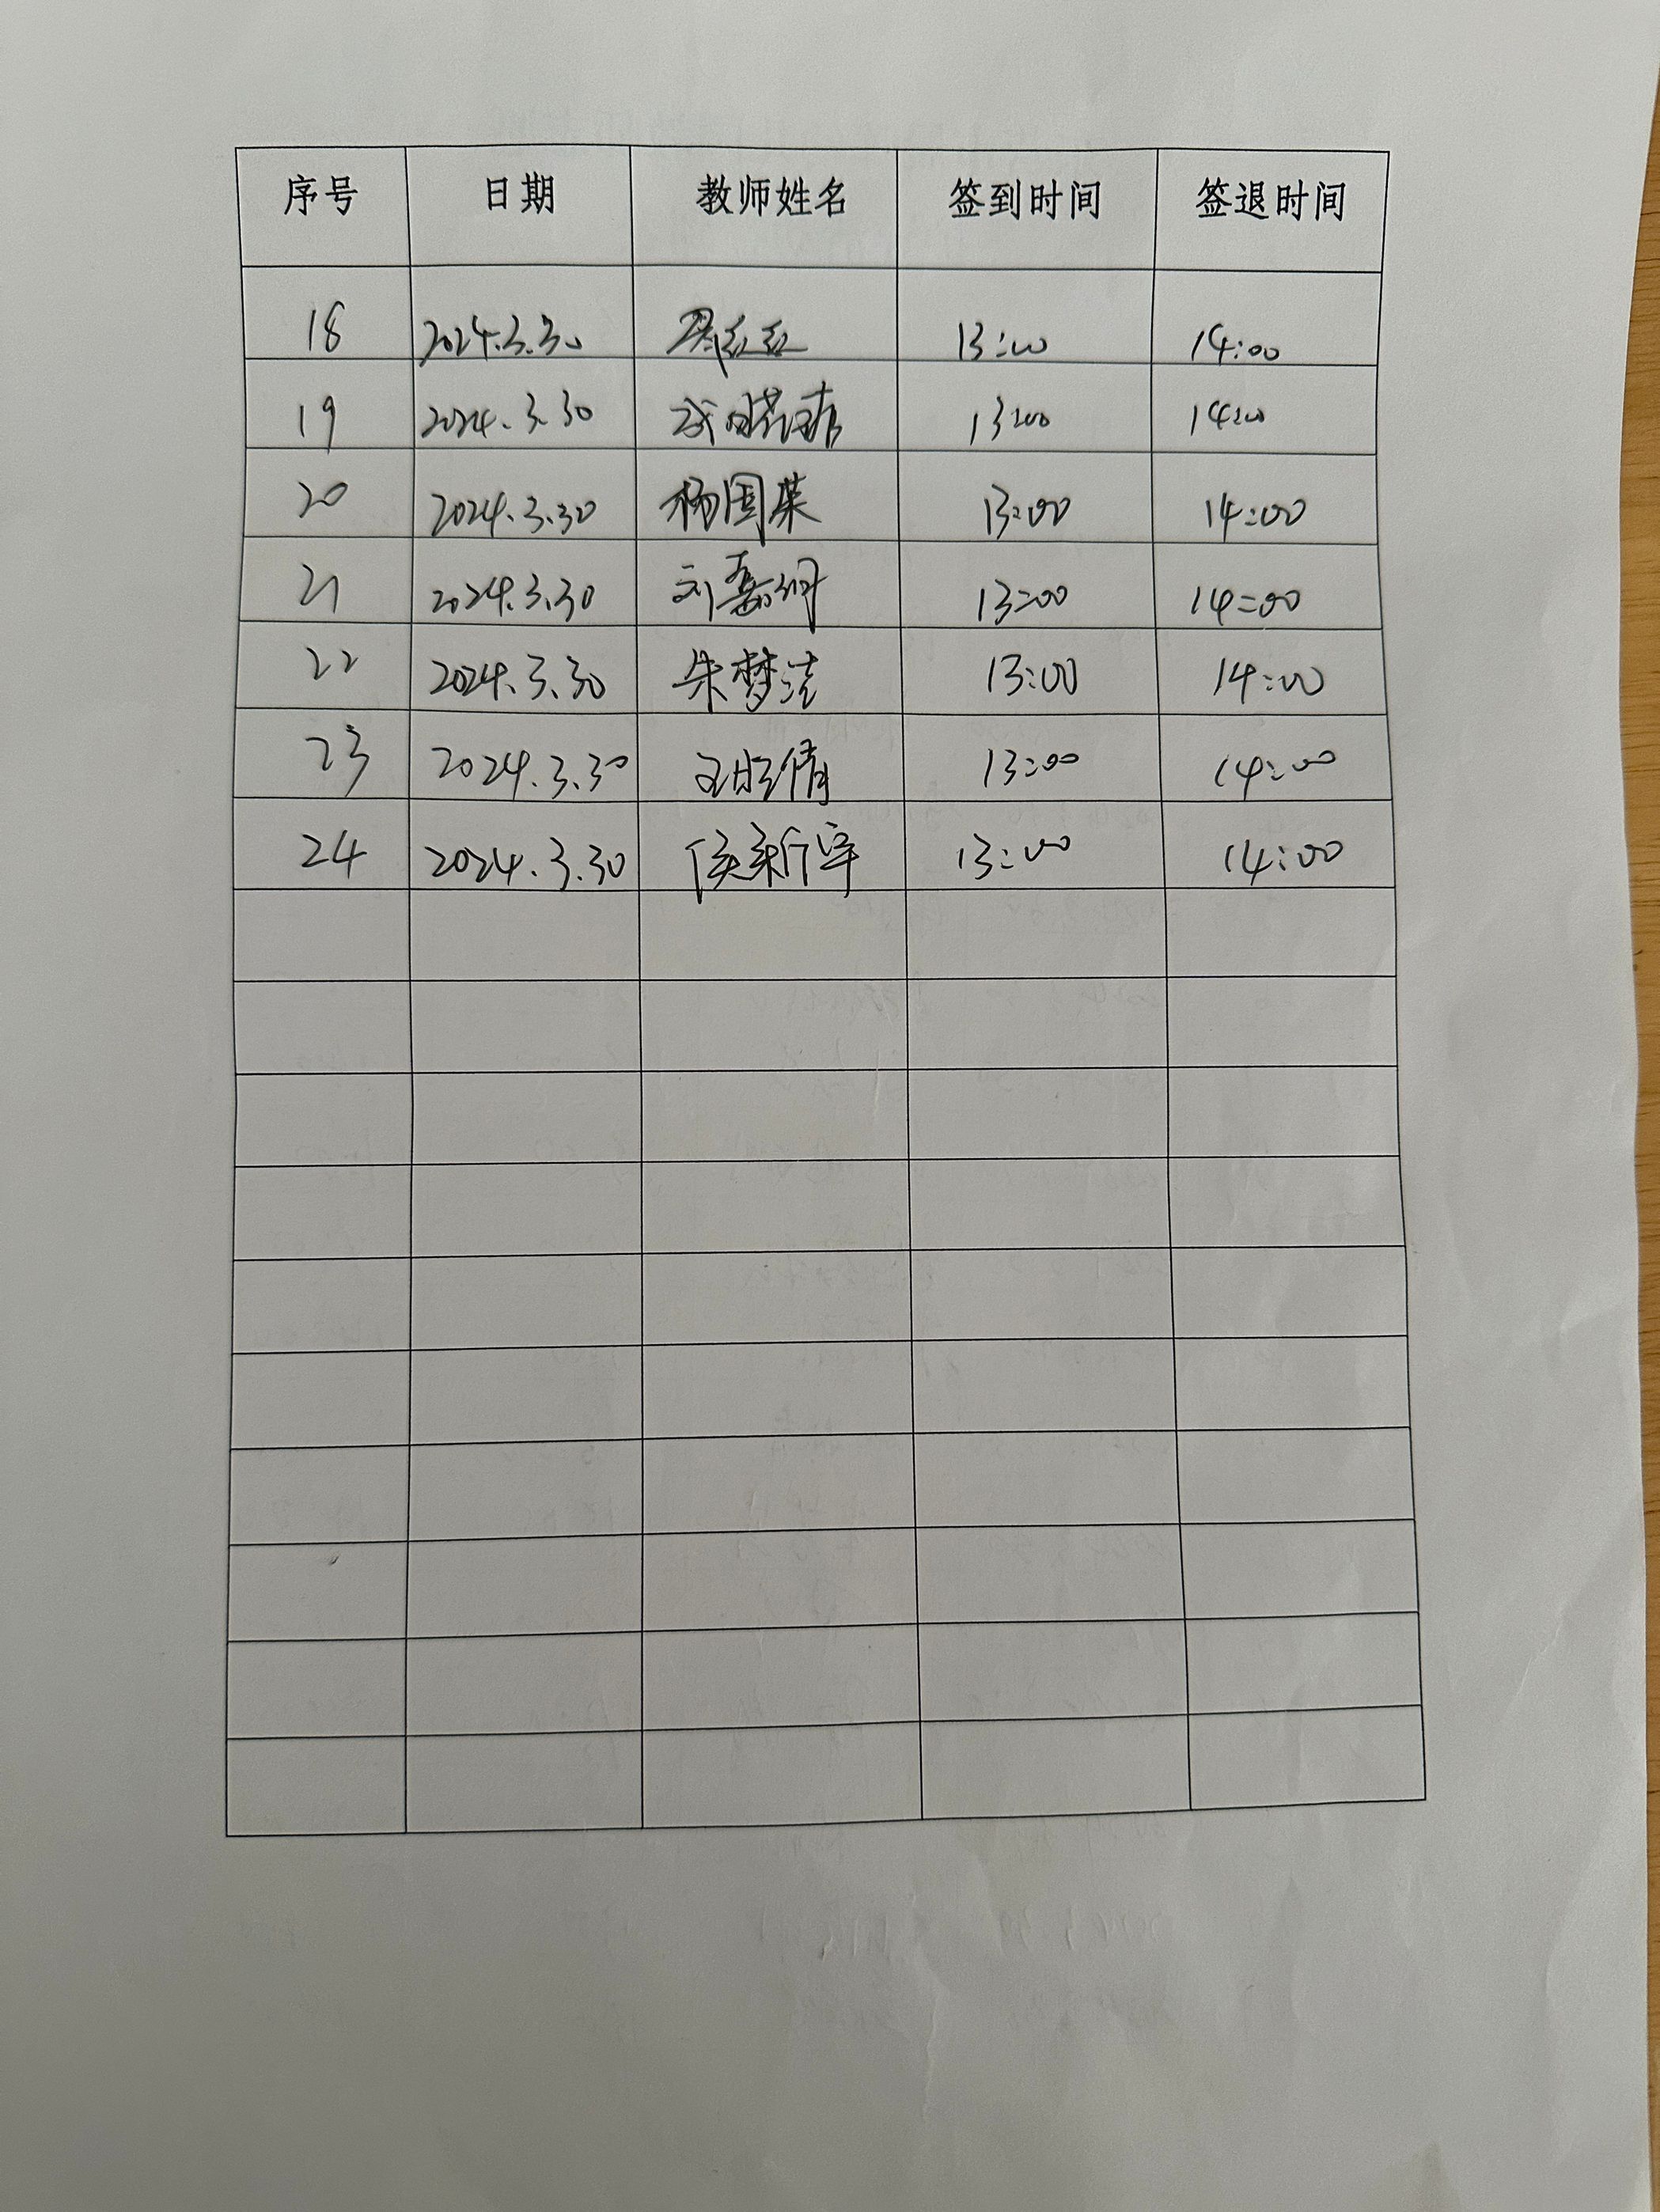 序号 日期 教师姓名 签到时间 签退时间
18 2024.3.30 13:00 14:00
19 2024.3.30 13:00 14:00
20 2024.3.30 杨国荣 13:00 14:00
21 2024.3.30 刘嘉 13:00 14:00
22 2024.3.30 朱梦洁 13:00 14:00
23 2024.3.30 倩 13:00 14:00
24 2024.3.30 侯新宇 13:00 14:00